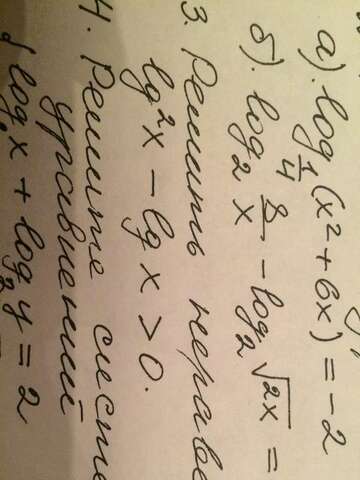 а). log_{1/4}(x² + 6x) = -2
б). log₂ 8/x - log₂ √2x =
3. Решить
lg²x - lg x > 0.
4. Решите
уравнений
{ log x + log y = 2